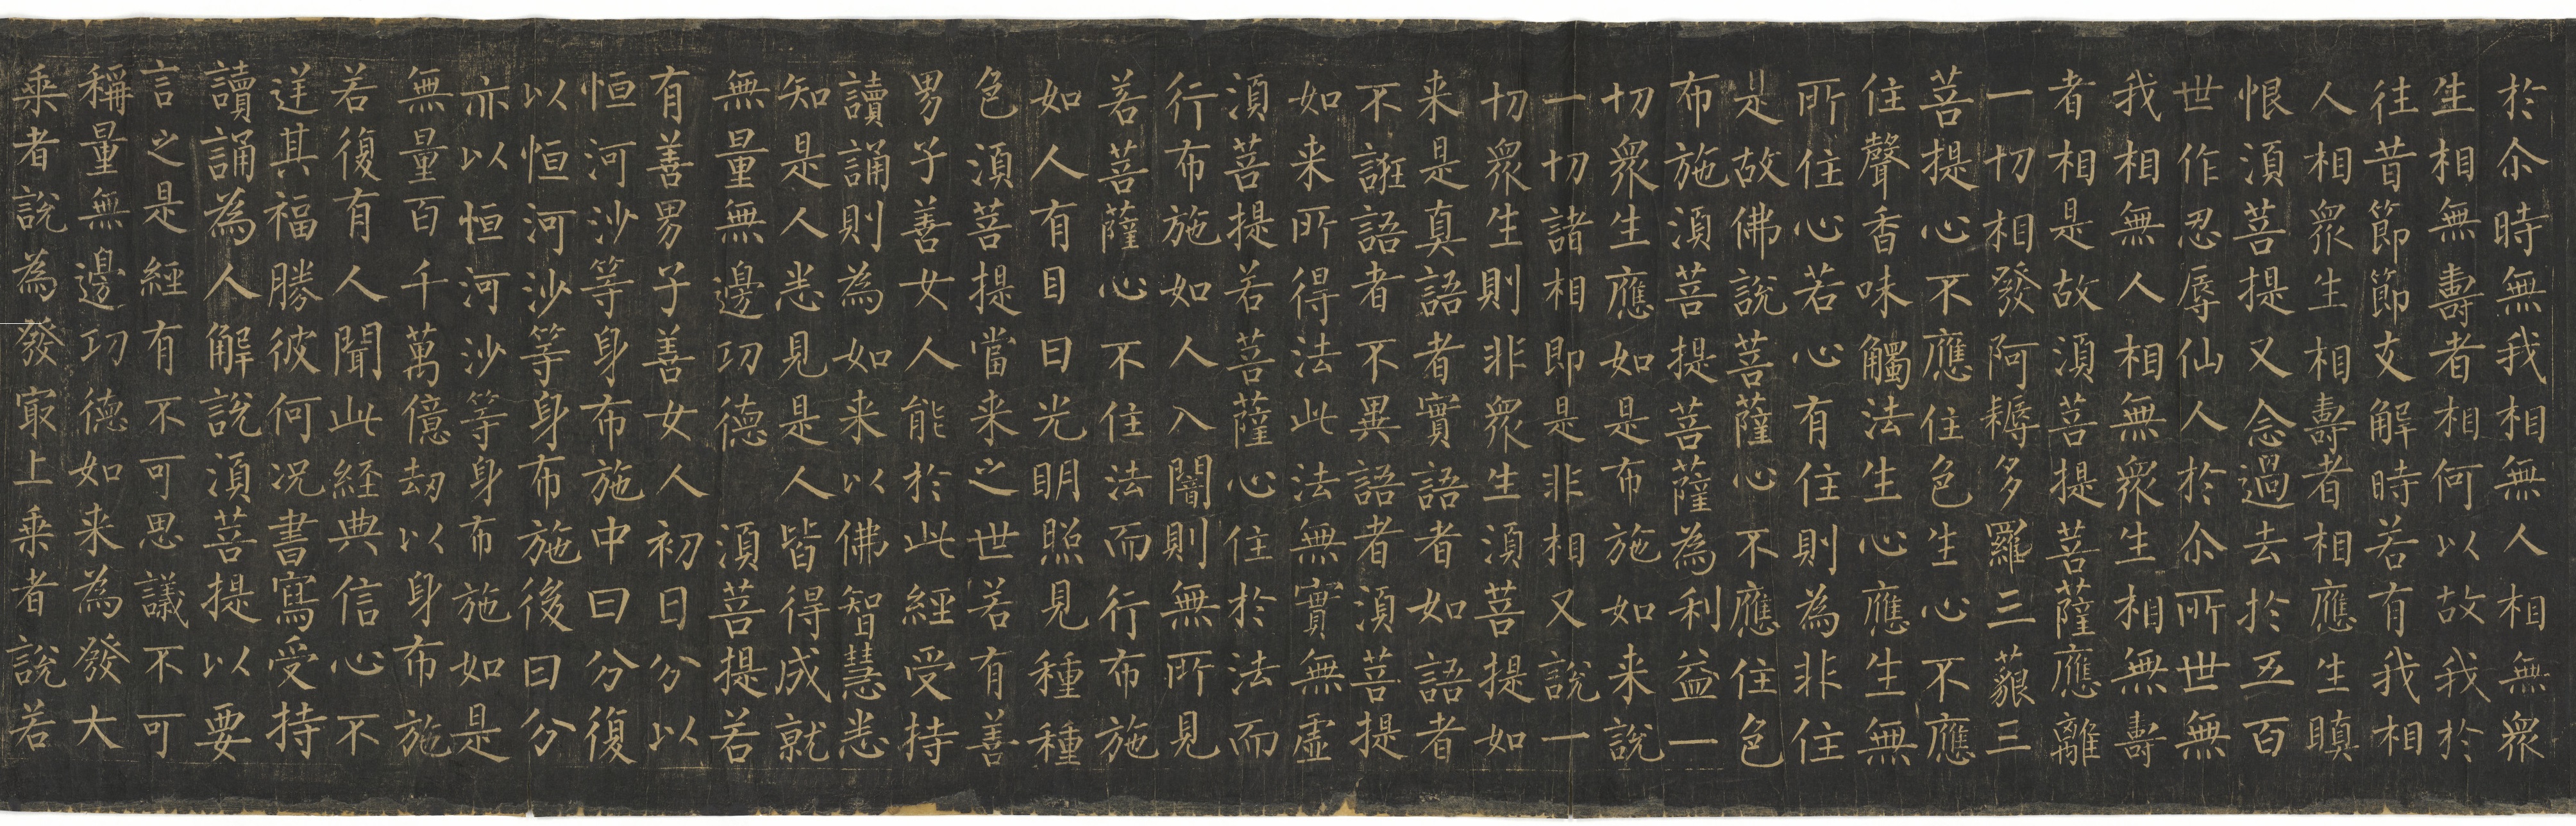 於尒時無我相無人相無眾
生相無壽者相何以故我於
往昔節節支解時若有我相
人相眾生相壽者相應生瞋
恨須菩提又念過去於五百
世作忍辱仙人於尒所世無
我相無人相無眾生相無壽
者相是故須菩提菩薩應離
一切相發阿耨多羅三藐三
菩提心不應住色生心不應
住聲香味觸法生心應生無
所住心若心有住則為非住
是故佛說菩薩心不應住色
布施須菩提菩薩為利益一
切眾生應如是布施如来說
一切諸相即是非相又說一
切眾生則非眾生須菩提如
来是真語者實語者如語者
不誑語者不異語者須菩提
如来所得法此法無實無虛
須菩提若菩薩心住於法而
行布施如人入闇則無所見
若菩薩心不住法而行布施
如人有目日光明照見種種
色須菩提當来之世若有善
男子善女人能於此經受持
讀誦則為如来以佛智慧悉
知是人悉見是人皆得成就
無量無邊功德 須菩提若
有善男子善女人初日分以
恒河沙等身布施中日分復
以恒河沙等身布施後日分
亦以恒河沙等身布施如是
無量百千萬億劫以身布施
若復有人聞此經典信心不
逆其福勝彼何況書寫受持
讀誦為人解說須菩提以要
言之是經有不可思議不可
稱量無邊功德如来為發大
乘者說為發冣上乘者說若